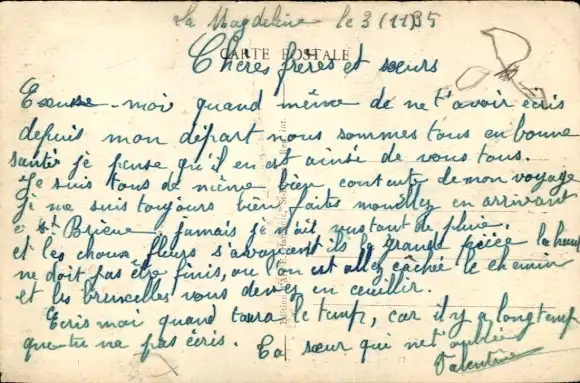 La Magdeleine le 3/11/35
CARTE POSTALE
Chères frères et sœurs
Excuse-moi quand même de ne t'avoir écris
depuis mon départ nous sommes tous en bonne
santé je pense qu'il en est ainsé de vous tous.
Je suis tous de même bien contente de mon voyage
je me suis toujours bien faites mouillez en arrivant
a St Brieuc, jamais je n'ait vus tant de pluie.
et les choux fleurs s'avancent ils la grande pièce la haut
ne doit pas être finis, ou l'on est allez câché le chemin
et les bruxelles vous devez en cueillir.
Ecris moi quand taura le temp, car il y a longtemp
que tu na pas écris. Ta sœur qui ne t'oublie
Valentine